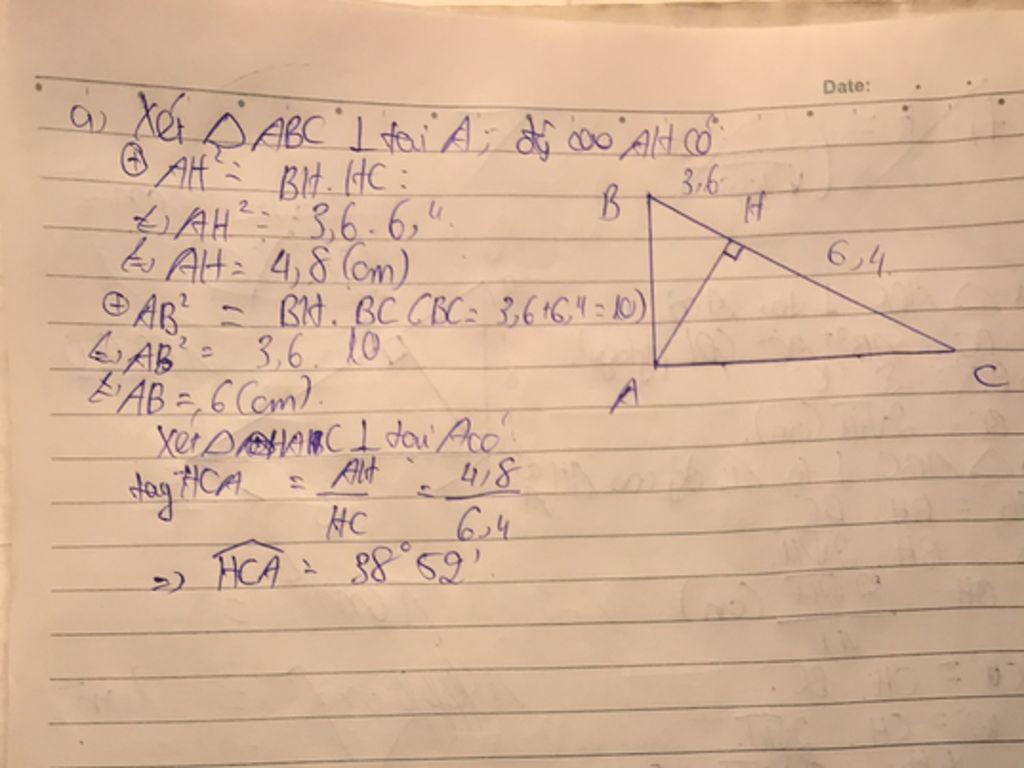 Date:
a) Xét △ ABC ⊥ tại A; đg cao AH có:
⊕ AH² = BH. HC:
⇔ AH² = 3,6 . 6,4
⇔ AH = 4,8 (cm)
⊕ AB² = BH. BC (BC = 3,6+6,4 = 10)
⇔ AB² = 3,6 . 10
⇔ AB = 6 (cm).
Xét △ HAC ⊥ tại A có:
tag HCA = AH/HC = 4,8/6,4
=> HCA = 38° 52'
B
3,6
H
6,4
A
C